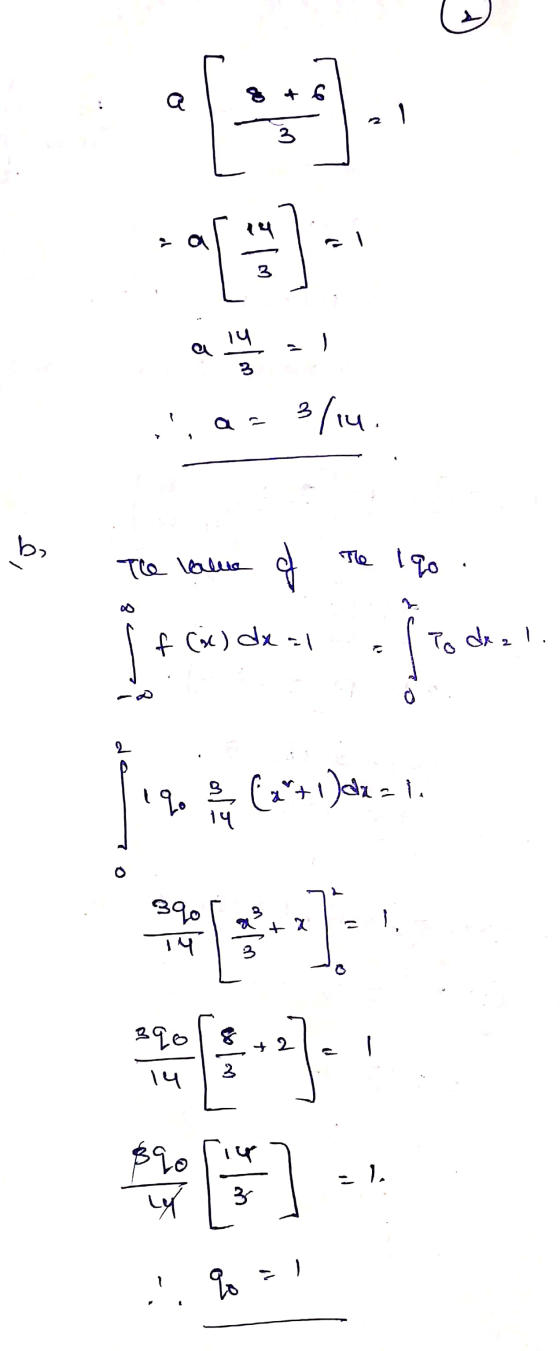 2
a [ 8 + 6 / 3 ] = 1
= a [ 14 / 3 ] = 1
a 14/3 = 1
∴ a = 3/14.
b, The value of the 1q₀.
∫_{-∞}^{∞} f(x) dx = 1 = ∫_{0}^{2} T₀ dx = 1.
∫_{0}^{2} 1q₀ 3/14 (x² + 1) dx = 1.
3q₀/14 [ x³/3 + x ]_{0}^{2} = 1.
3q₀/14 [ 8/3 + 2 ] = 1
3q₀/14 [ 14/3 ] = 1.
∴ q₀ = 1